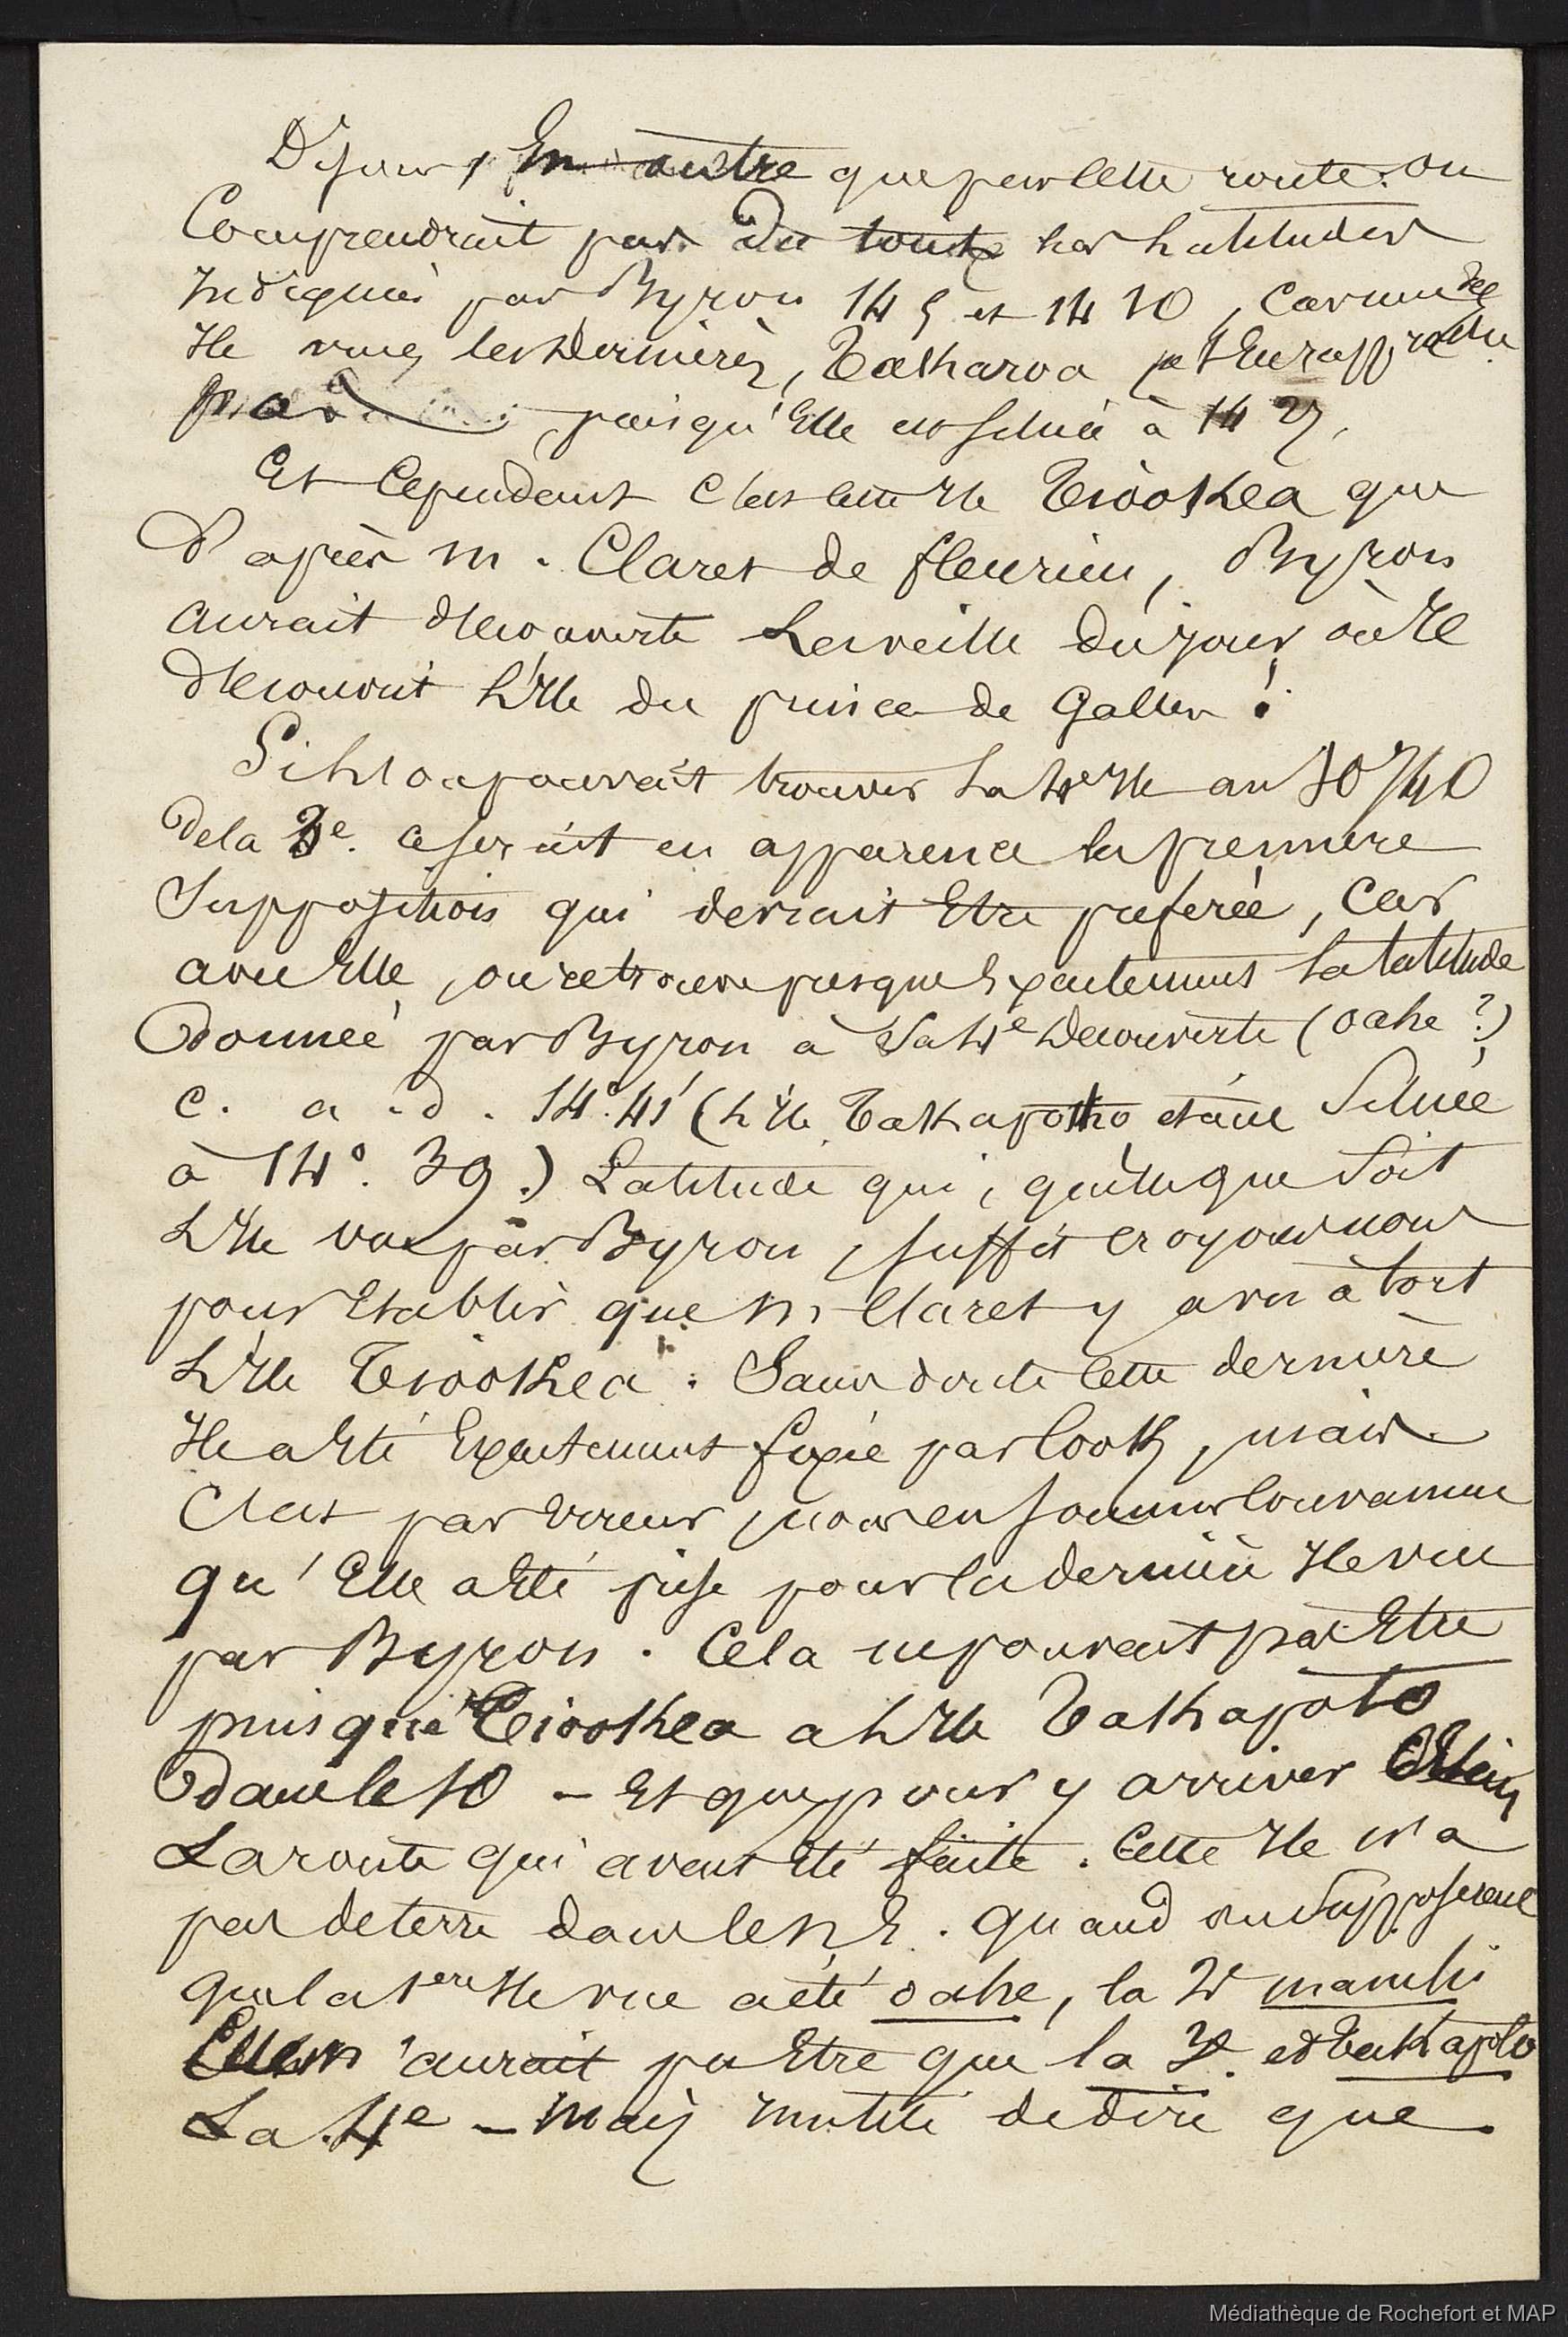 D'jour, En outre que par cette route. on
Comprendrait pas du tout les Latitudes
Indiquées par Byron 14 5 et 14 10, Car une des
Ile vues les dernières, Takaroa
pas puisqu'Elle est située à 14 27.
Et Cependant C'est cette Ile Tiookea que
D'après M. Claret de fleurieu, Byron
aurait découverte La veille du jour où Il
découvrit L'Ile du prince de Galles !
Si L'on pouvait trouver La 4e Ile au SO 1/4 O
de la 3e. ce serait en apparence la premiere
Supposition qui devrait Etre preferée, Car
avec Elle, on retrouve presque Exactement La latitude
donnée par Byron à Sa 1e Decouverte (oahe ?)
c. a. d. 14°. 41' (L'Ile Takapotho étant Située
à 14°. 39.) Latitude qui, quelle que Soit
L'Ile vue par Byron, suffit croyons nous
pour Etablir que M. Claret y a vu à tort
L'Ile Tiookea. Sans doute cette dernière
Ile a Eté Exactement fixée par Cook, mais
C'est par Erreur, nous en sommes Convaincu
qu'Elle a Eté prise pour la dernière Ile vue
par Byron. Cela ne pouvait pas Etre
puisque Tiookea a L'Ile Takapoto
dans le SO - Et que pour y arriver
La route qui avait Eté faite. Cette Ile n'a
pas de terre dans le N. E. quand on Supposerait
que la 1ere Ile vue a été oahe, la 2e manihi
Elle n'aurait pu Etre que la 3e. et Takapoto
La 4e - Mais inutile de dire que
Médiathèque de Rochefort et MAP